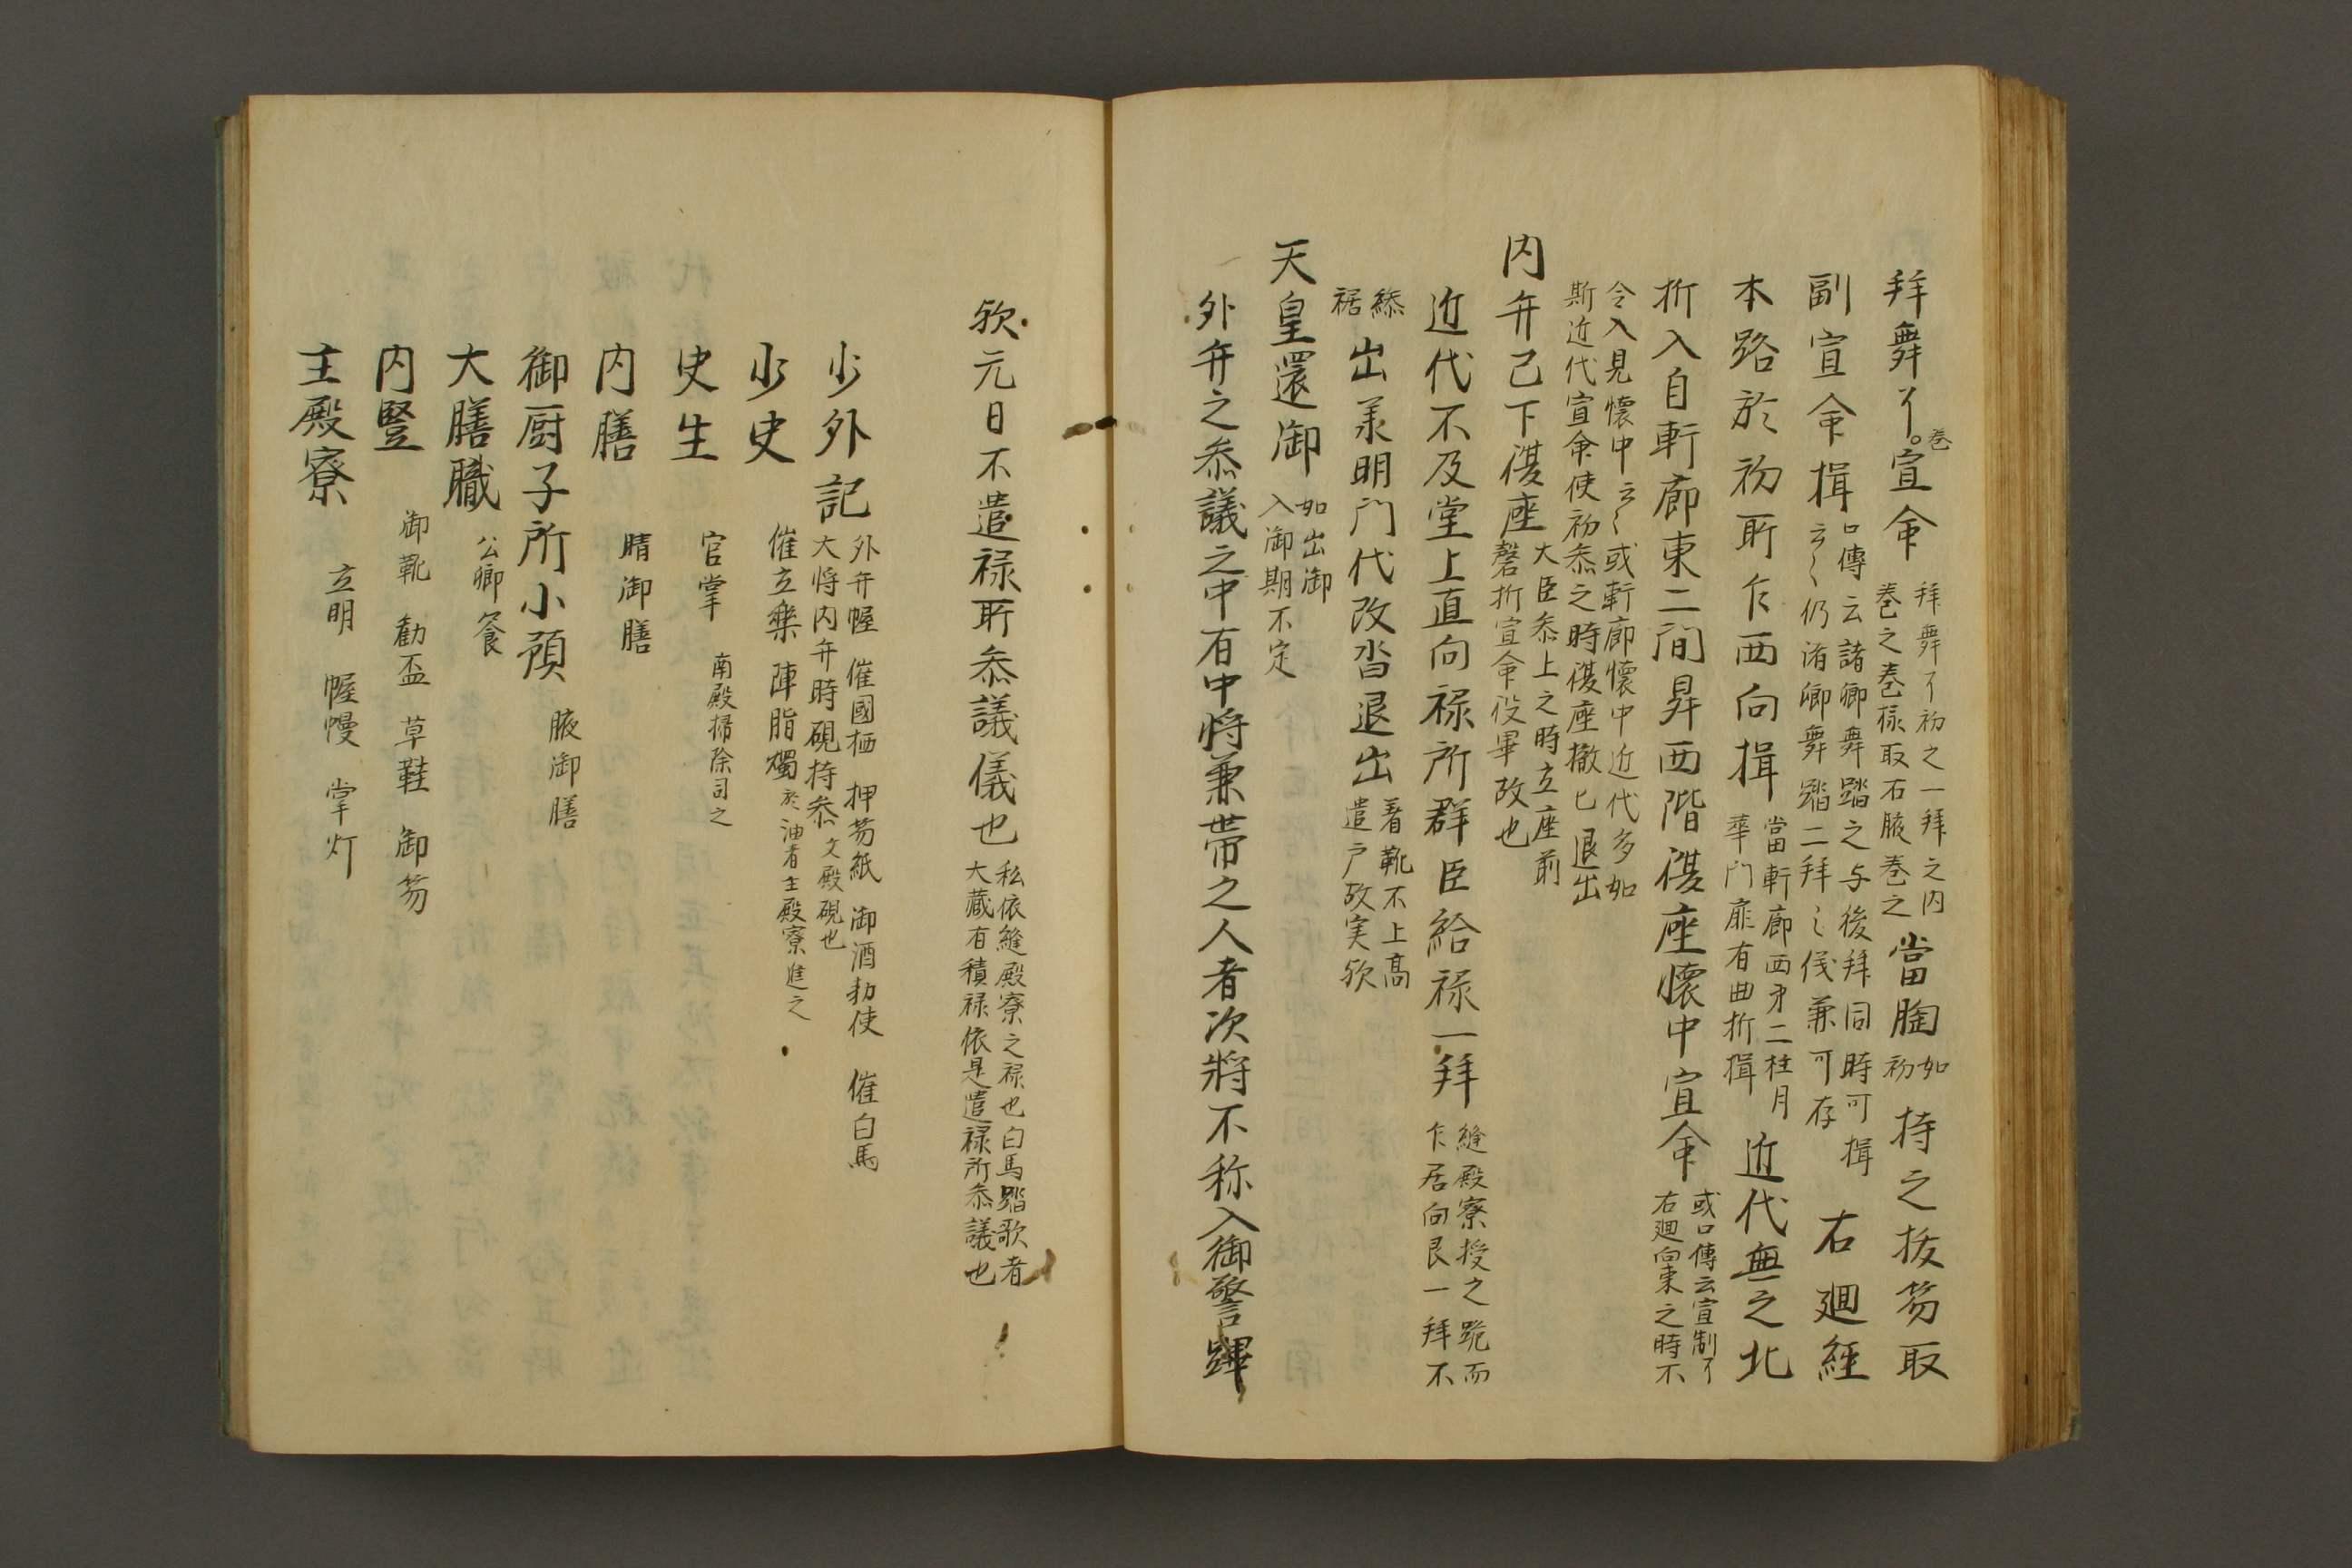 拜舞了。巻宣命
拜舞了初之一拜之内
巻之巻樣取右腋巻之
當胸
如
初
持之抜笏取
副宣命揖
口傳云諸卿舞踏之与後拜同時可揖
云〻仍諸卿舞踏二拜〻儀兼可存
右廻經
本路於初所乍西向揖
當軒廊西才二柱月
華門扉有曲折揖
近代無之北
折入自軒廊東二間昇西階復座懷中宣命
或口傳云宣制了
右廻向東之時不
令入見懷中云〻或軒廊懷中近代多如
斯近代宣命使初参之時復座撤已退出
内弁已下復座
大臣参上之時立座前
磬折宣命役畢故也
近代不及堂上直向禄所群臣給禄一拜
縫殿寮授之跪而
乍居向艮一拜不
絲
裾
出羕明門代改沓退出
着靴不上高
遣戸故実欤
天皇還御
如出御
入御期不定
外弁之参議之中有中將兼帶之人者次將不称入御警蹕
欤元日不遣禄所参議儀也
私依縫殿寮之禄也白馬踏歌者
大藏有積禄依是遣禄所参議也
少外記
外弁幄 催國栖 押笏紙 御酒勅使 催白馬
大将内弁時硯持参 文殿硯也
少史
催立樂 陣脂燭 於油者主殿寮進之
史生
官掌 南殿掃除司之
内膳
晴御膳
御厨子所小預
腋御膳
大膳職
公卿飡
内豎
御靴 勧盃 草鞋 御笏
主殿寮
立明 幄幔 掌灯